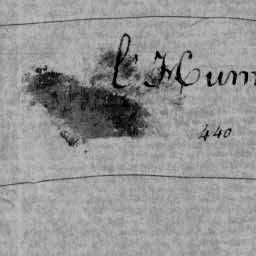 l'Hum
440